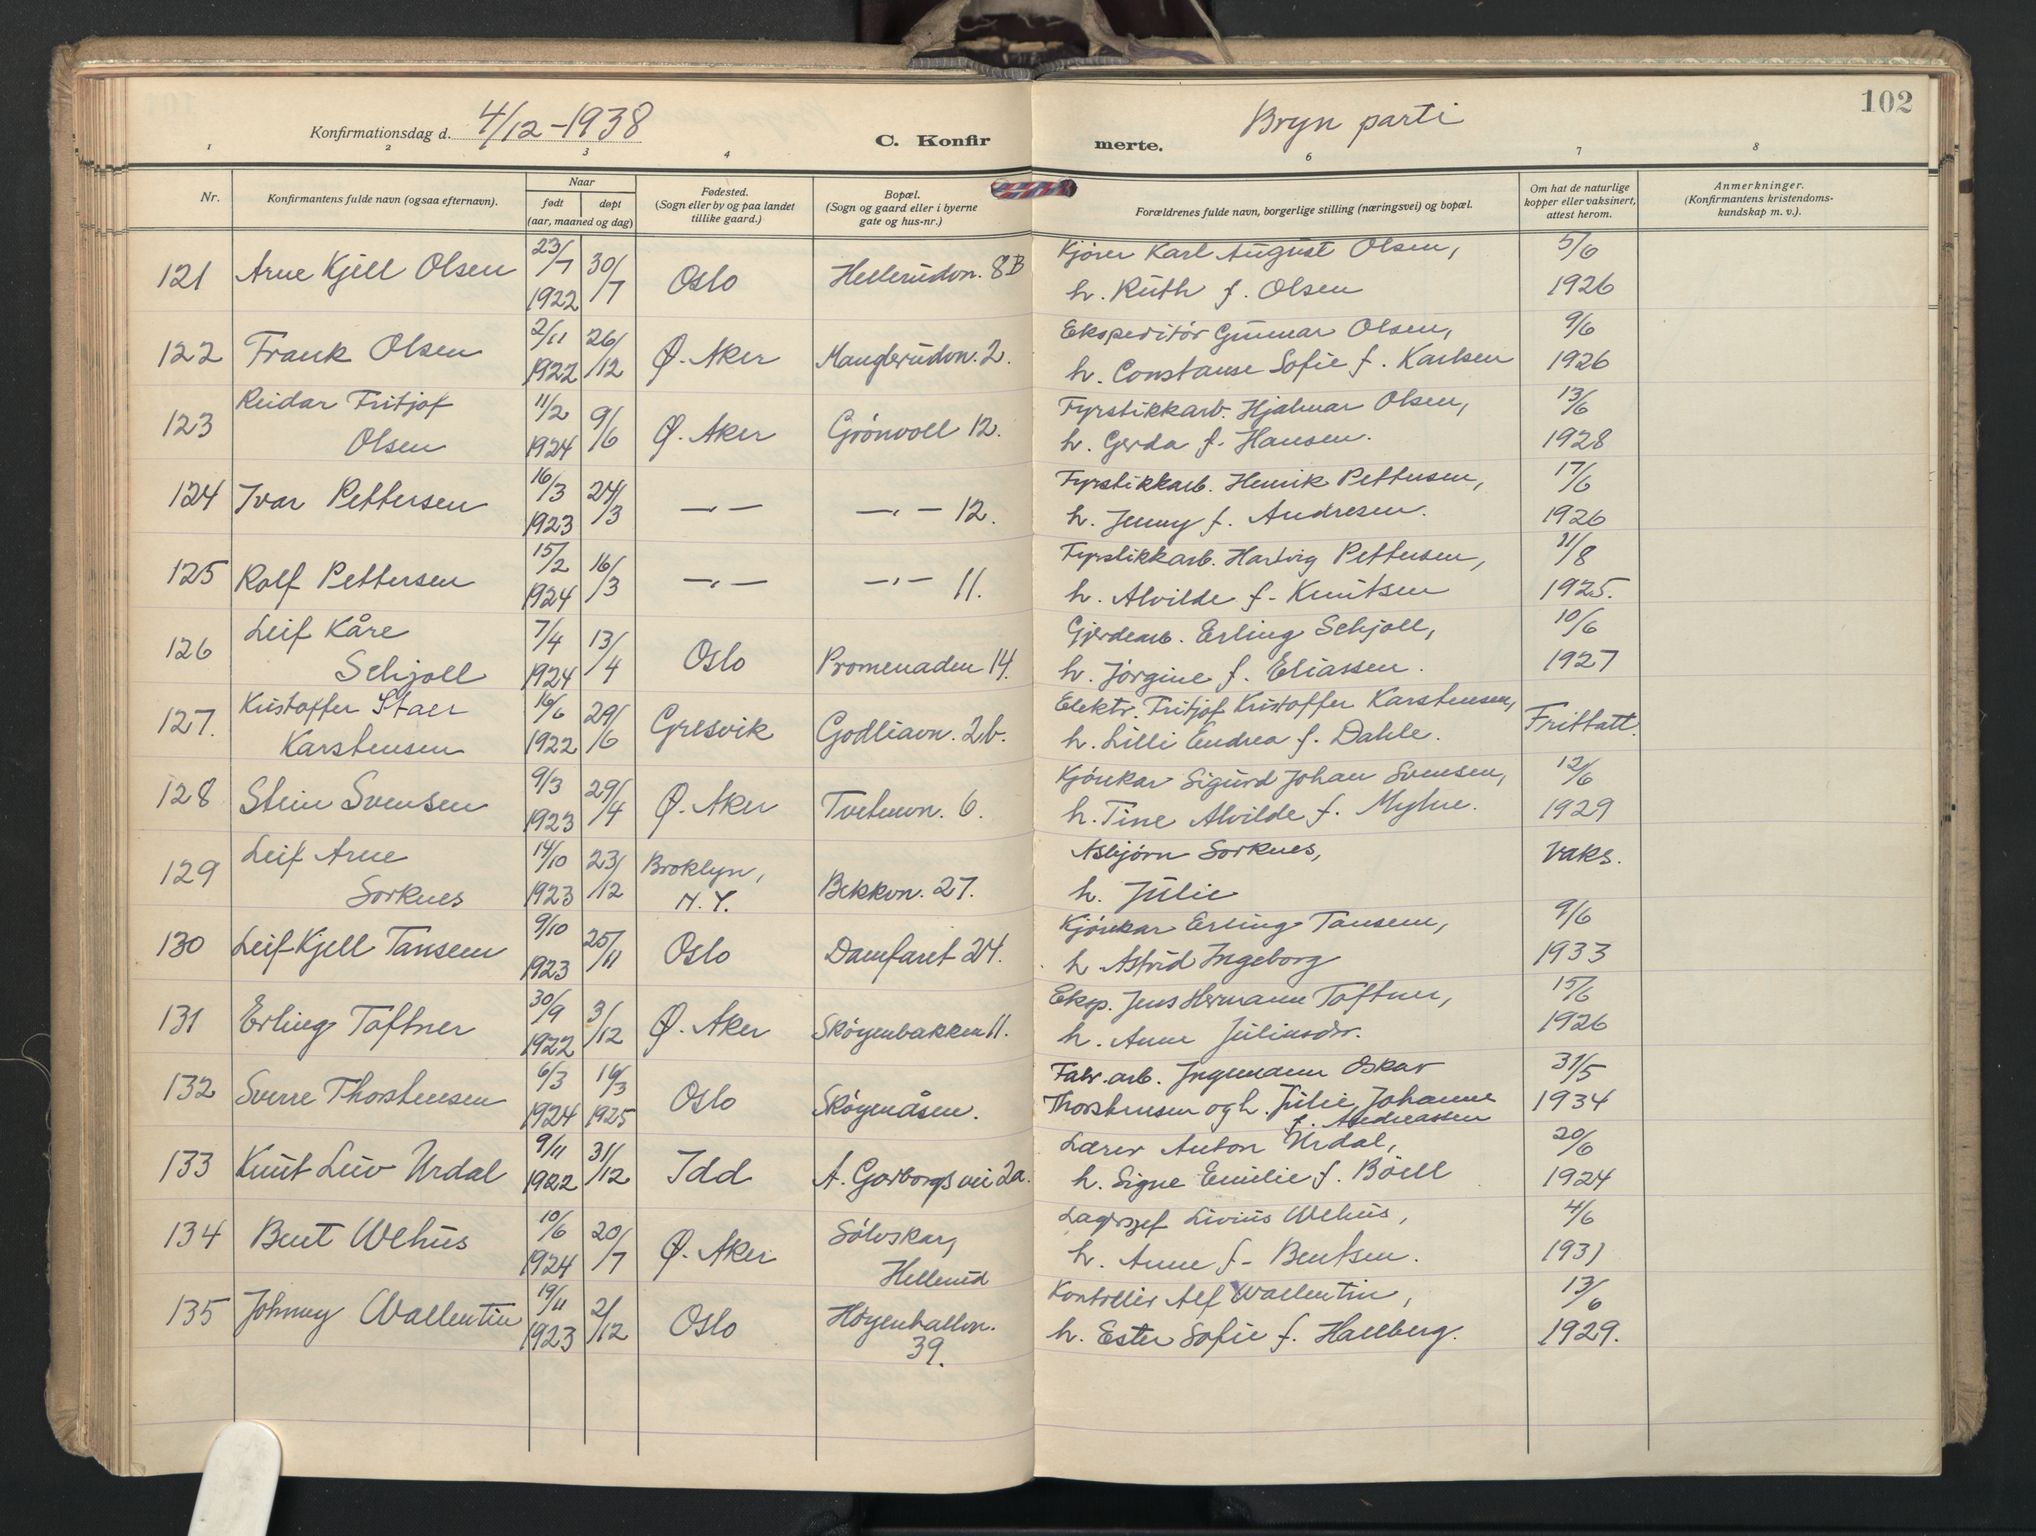 102
Konfirmationsdag d. 4/12 - 1938
C. Konfirmerte.
Bryn parti
1 2 3 4 5 6 7 8
Nr.
Konfirmantens fulde navn (ogsaa efternavn).
Naar
født døpt
(aar, maaned og dag)
Fødested.
(Sogn eller by og paa landet
tillike gaard.)
Bopæl.
(Sogn og gaard eller i byerne
gate og hus-nr.)
Forældrenes fulde navn, borgerlige stilling (næringsvei) og bopæl.
Om hat de naturlige
kopper eller vaksinert,
attest herom.
Anmerkninger.
(Konfirmantens kristendoms-
kundskap m. v.).
121 Arne Kjell Olsen 23/7 1922 30/7 Oslo Hellerudvn. 8B Kjører Karl August Olsen, 5/6
h. Ruth f. Olsen 1926
122 Frank Olsen 2/11 1922 26/12 Ø. Aker Manglerudvn. 2. Ekspeditør Gunnar Olsen, 9/6
h. Constanse Sofie f. Karlsen 1926
123 Reidar Fritjof 11/2 1924 9/6 Ø. Aker Grønvoll 12. Fyrstikkarb. Hjalmar Olsen, 13/6
Olsen h. Gerda f. Hansen. 1928
124 Ivar Pettersen 16/3 1923 24/3 —„— —„— 12. Fyrstikkarb. Henrik Pettersen, 17/6
h. Jenny f. Andresen. 1926
125 Rolf Pettersen 15/2 1924 16/3 —„— —„— 11. Fyrstikkarb. Hartvig Pettersen, 11/8
h. Alvilde f. Knutsen 1925.
126 Leif Kåre 7/4 1924 13/4 Oslo Promenaden 14. Gjerdearb. Erling Schjoll, 10/6
Schjoll h. Jørgine f. Eliassen. 1927
127. Kristoffer Staer 16/6 1922 29/6 Gresvik Godliavn. 2b. Elektr. Fritjof Kristoffer Karstensen, Frittatt.
Karstensen h. Lilli Endrea f. Dahle.
128 Stein Svensen 9/3 1923 29/4 Ø. Aker Tvetenvn. 6. Kjørekar Sigurd Johan Svensen, 12/6
h. Tine Alvilde f. Myhre. 1929
129 Leif Arne 14/10 1923 23/12 Broklyn, N. Y. Bekkvn. 27. Asbjørn Sorknes, Vaks.
Sorknes h. Julie
130 Leif Kjell Tansem 9/10 1923 25/11 Oslo Damfaret 24. Kjørekar Erling Tansem, 9/6
h Astrid Ingeborg 1933
131 Erling Toftner 30/9 1922 3/12 Ø. Aker Skøyenbakken 11. Eksp. Jens Hermann Toftner, 15/6
h. Anne Julinsdr. 1926
132 Sverre Thorstensen 6/3 1924 16/3 1925 Oslo Skøyenåsen. Fabr.arb. Ingemann Oskar 31/5
Thorstensen og h. Julie Johanne 1934
f. Andreassen
133 Knut Leiv Urdal 9/11 1922 31/12 Idd A. Garborgs vei 2a. Lærer Anton Urdal, 20/6
h. Signe Emilie f. Böell 1924
134 Bent Wehus 10/6 1924 20/7 Ø. Aker Sölvskar, Lagersjef Livius Wehus, 4/6
Hellerud h. Anne f. Bentsen. 1931
135 Johnny Wallentin 19/11 1923 2/12 Oslo Høyenhallvn. Kontrollør Alf Wallentin, 13/6
39. h. Ester Sofie f. Hallberg. 1929.